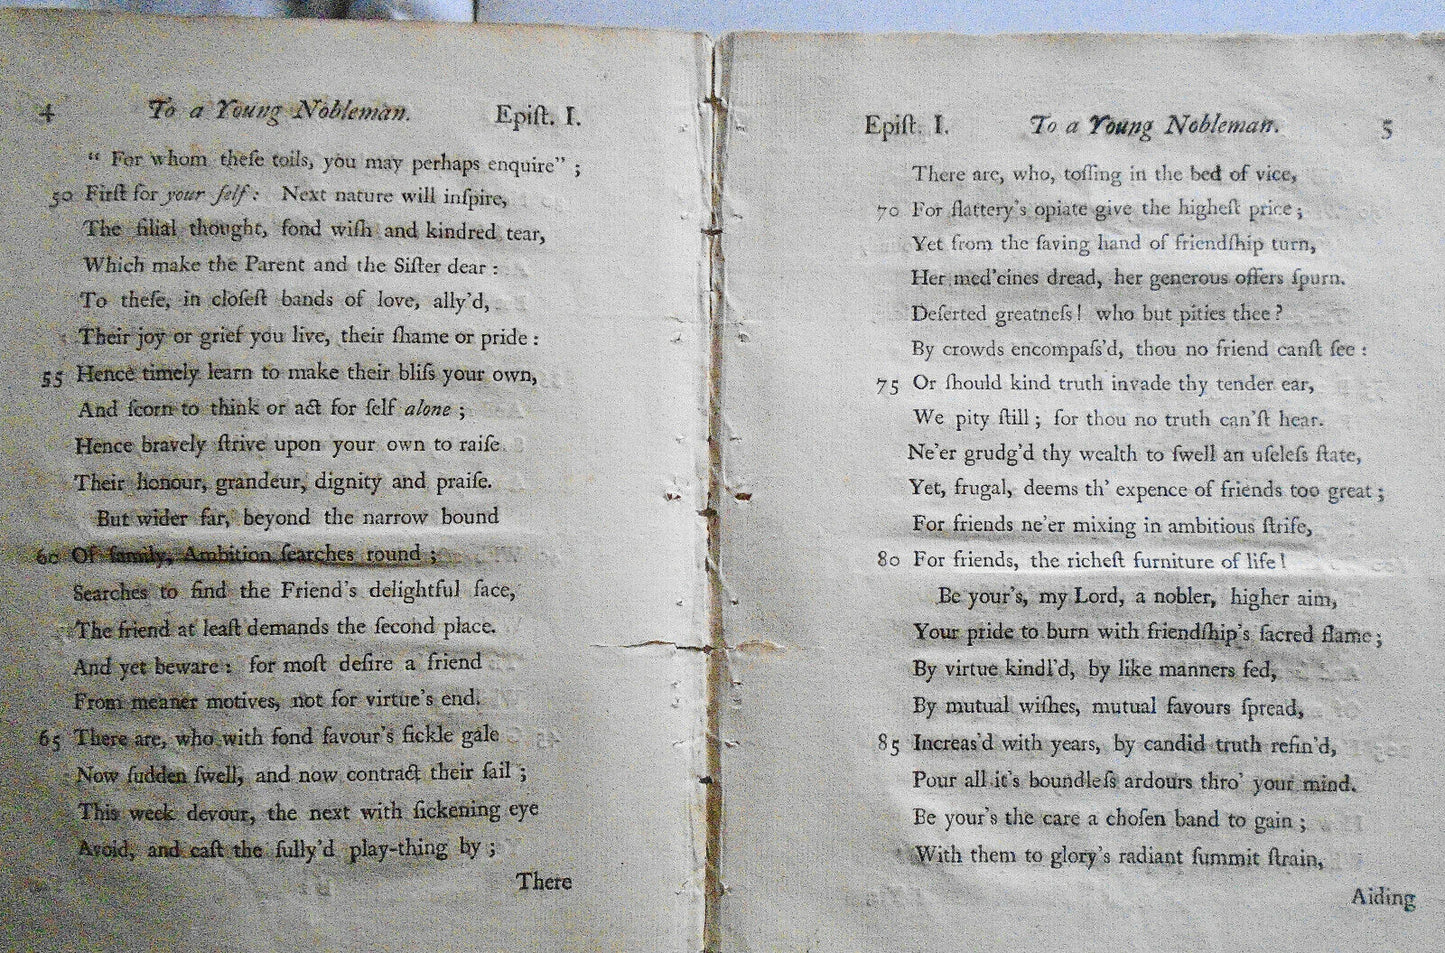 4 To a Young Nobleman. Epiſt. I.
“ For whom theſe toils, you may perhaps enquire” ;
50 Firſt for your ſelf : Next nature will inſpire,
The filial thought, fond wiſh and kindred tear,
Which make the Parent and the Siſter dear :
To theſe, in cloſeſt bands of love, ally'd,
Their joy or grief you live, their ſhame or pride :
55 Hence timely learn to make their bliſs your own,
And ſcorn to think or act for ſelf alone ;
Hence bravely ſtrive upon your own to raiſe
Their honour, grandeur, dignity and praiſe.
But wider far, beyond the narrow bound
60 Of family, Ambition ſearches round ;
Searches to find the Friend's delightful face,
The friend at leaſt demands the ſecond place.
And yet beware : for moſt deſire a friend
From meaner motives, not for virtue's end.
65 There are, who with fond favour's fickle gale
Now ſudden ſwell, and now contract their ſail ;
This week devour, the next with ſickening eye
Avoid, and caſt the ſully'd play-thing by ;
There
Epiſt. I. To a Young Nobleman. 5
There are, who, toſſing in the bed of vice,
70 For flattery's opiate give the higheſt price ;
Yet from the ſaving hand of friendſhip turn,
Her med'cines dread, her generous offers ſpurn.
Deſerted greatneſs! who but pities thee ?
By crowds encompaſs'd, thou no friend canſt ſee :
75 Or ſhould kind truth invade thy tender ear,
We pity ſtill ; for thou no truth can'ſt hear.
Ne'er grudg'd thy wealth to ſwell an uſeleſs ſtate,
Yet, frugal, deems th' expence of friends too great ;
For friends ne'er mixing in ambitious ſtrife,
80 For friends, the richeſt furniture of life !
Be your's, my Lord, a nobler, higher aim,
Your pride to burn with friendſhip's ſacred flame ;
By virtue kindl'd, by like manners fed,
By mutual wiſhes, mutual favours ſpread,
85 Increas'd with years, by candid truth refin'd,
Pour all it's boundleſs ardours thro' your mind.
Be your's the care a choſen band to gain ;
With them to glory's radiant ſummit ſtrain,
Aiding